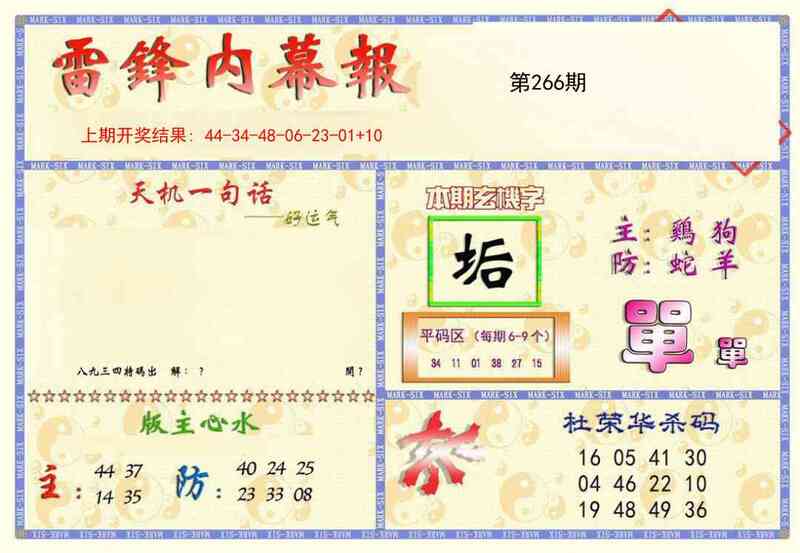 雷鋒内幕報
第266期
上期开奖结果: 44-34-48-06-23-01+10
天机一句话
——好运气
八九三四特码出 解：？ 開？
本期玄機字
垢
主：鷄 狗
防：蛇 羊
單 單
平码区（每期6-9个）
34 11 01 38 27 15
版主心水
主：
44 37
14 35
防：
40 24 25
23 33 08
杜荣华杀码
16 05 41 30
04 46 22 10
19 48 49 36
MARK-SIX